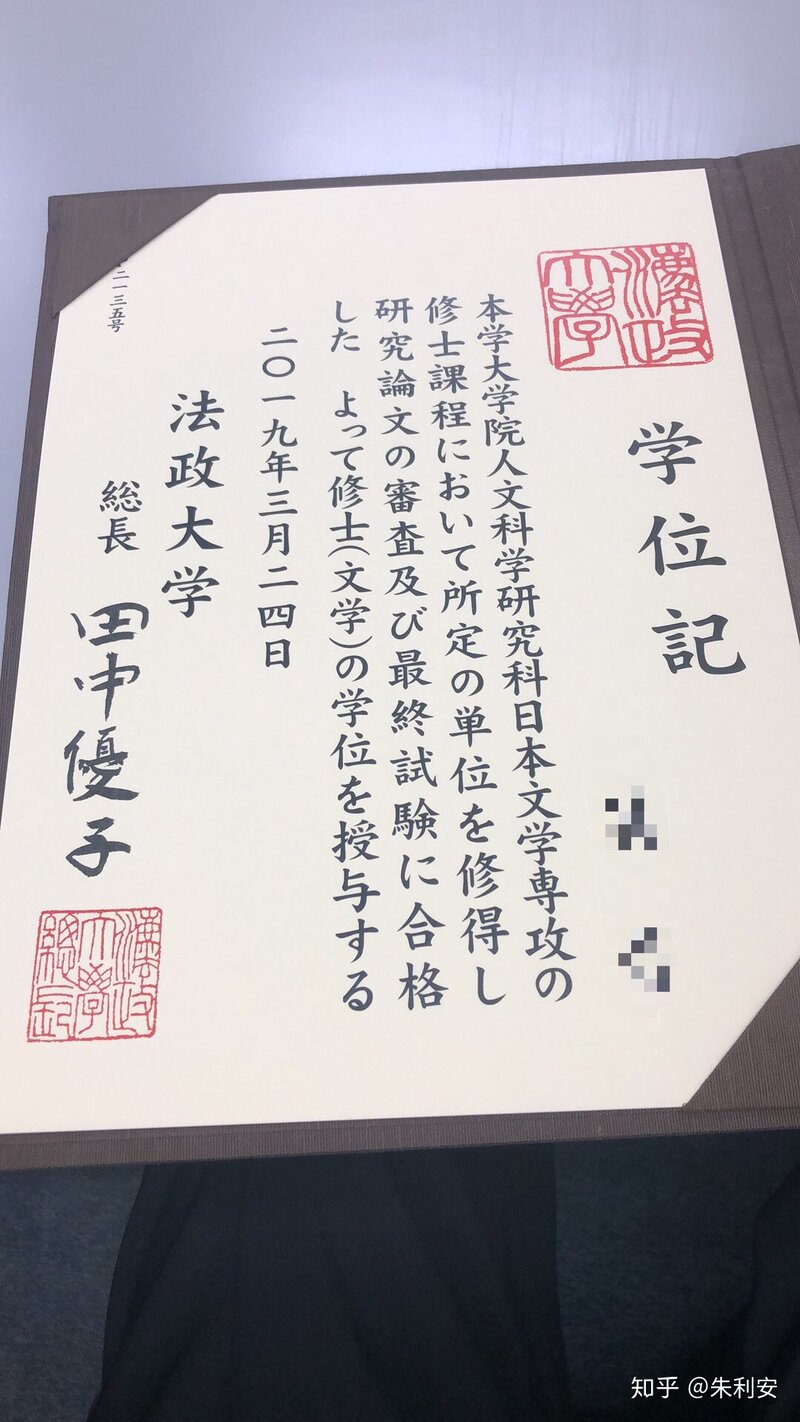 学位記
本学大学院人文科学研究科日本文学専攻の
修士課程において所定の単位を修得し
研究論文の審査及び最終試験に合格
した よって修士(文学)の学位を授与する
二〇一九年三月二四日
法政大学
総長 田中優子
二一三五号
灋政
大學
灋政
大學
總長印
知乎 @朱利安